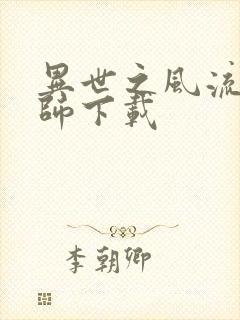 異世之風流
師下載
李朝卿